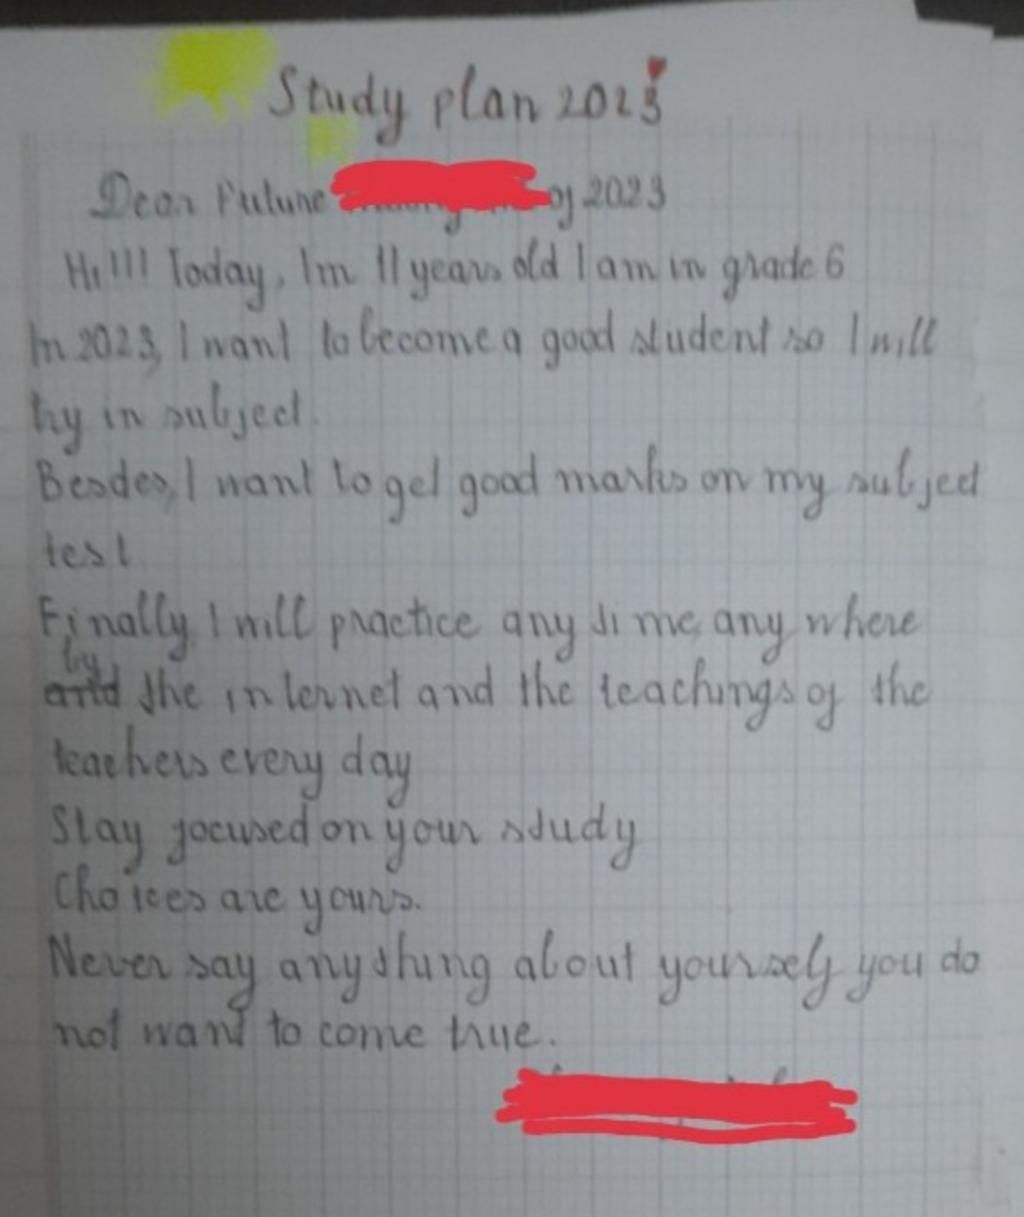 Study plan 2023
Dear Future of 2023
Hi!!! Today, Im 11 years old I am in grade 6
In 2023, I want to become a good student so I will
try in subject.
Besdes, I want to get good marks on my subject
test
Finally, I will practice any time, any where
by
the internet and the teachings of the
teachers every day
Stay focused on your study
Choices are yours.
Never say anything about yourself you do
not want to come true.